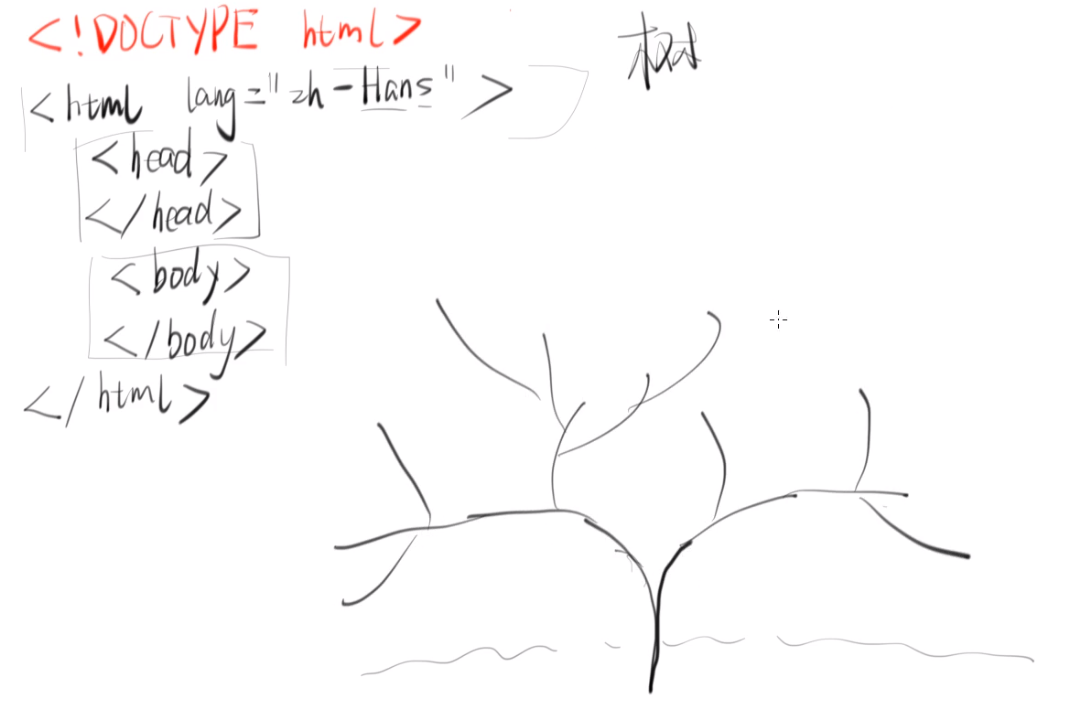 <!DOCTYPE html>
树
<html lang="zh-Hans">
<head>
</head>
<body>
</body>
</html>